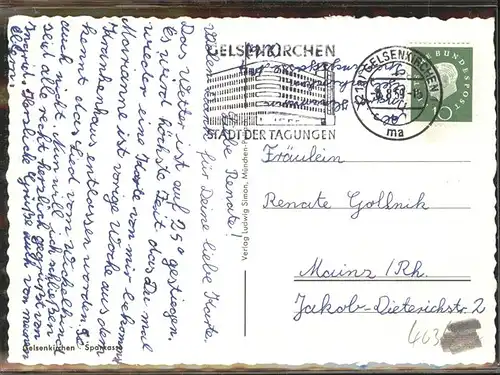 GELSENKIRCHEN
STADT DER TAGUNGEN
GELSENKIRCHEN
ma
DEUTSCHE BUNDESPOST
Liebe Renate!
für Deine liebe Karte.
Das Wetter ist auf 25° gestiegen.
Es wird höchste Zeit, dass Du mal
wieder eine Karte von mir bekommst.
Marianne ist vorige Woche aus dem
Krankenhaus entlassen worden. Sie
kennt das Lied vom
auch nicht. Nun will ich schließen.
Seid alle recht herzlich gegrüßt von
Herzliche Grüße auch von meinen
Eltern.
Fräulein
Renate Gollnik
Mainz/Rh.
Jakob-Dieterichstr. 2
Verlag Ludwig Simon, München-
Gelsenkirchen - Sparkasse